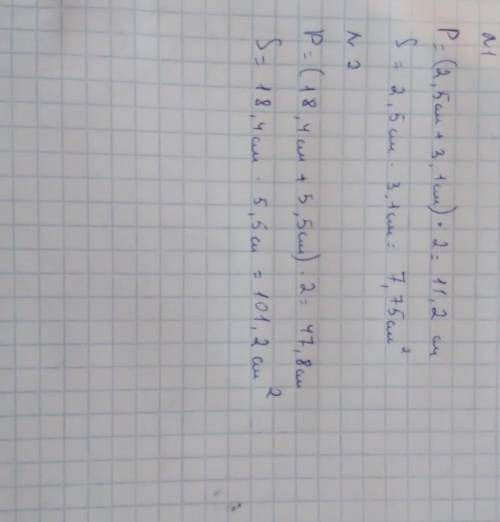 №1
P = (2,5см + 3,1см) · 2 = 11,2 см
S = 2,5см · 3,1см = 7,75см²
№2
P = (18,4см + 5,5см) · 2 = 47,8см
S = 18,4см · 5,5см = 101,2 см²